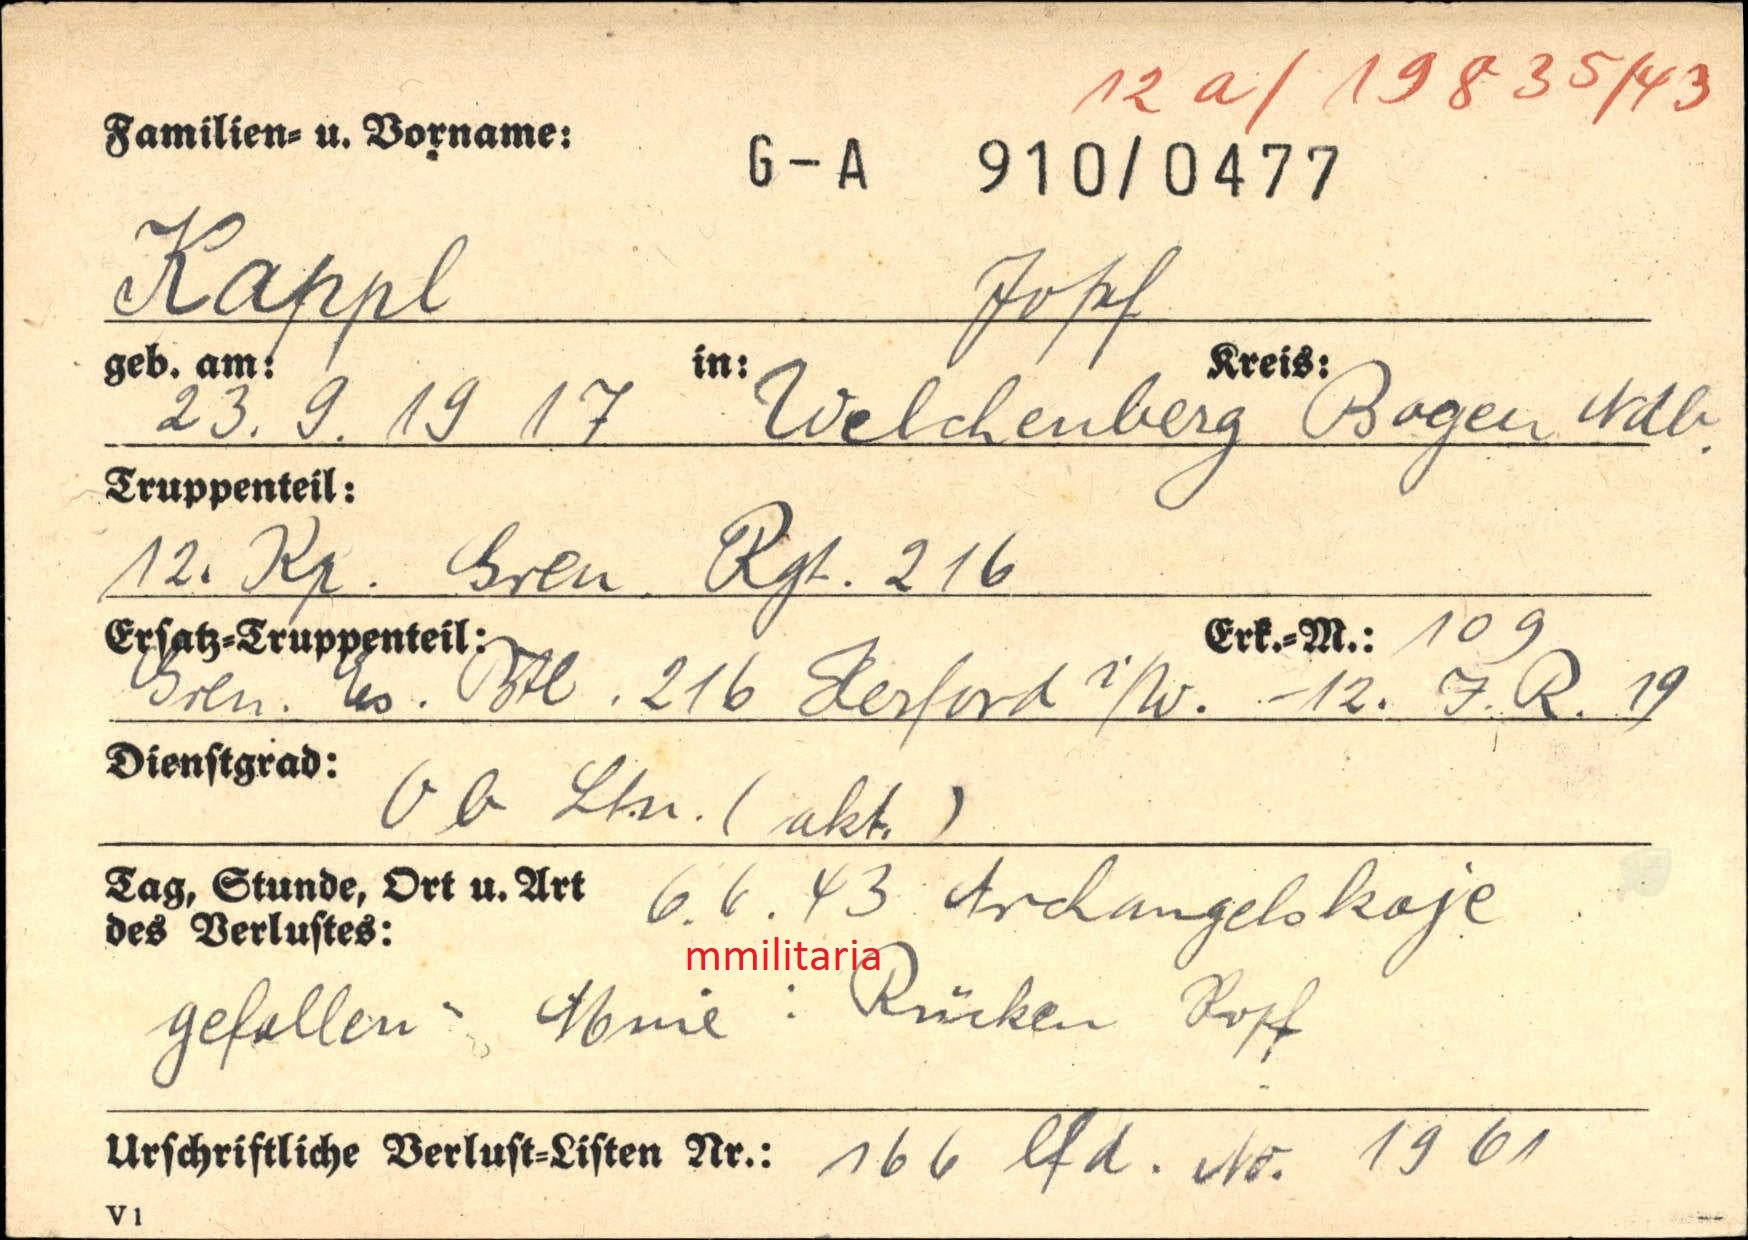 12 a/ 19835/43
Familien- u. Vorname:
G-A 910/0477
Kappl Josef
geb. am: in: Kreis:
23. 9. 1917 Welchenberg Bogen Ndb.
Truppenteil:
12. Kp. Gren. Rgt. 216
Ersatz-Truppenteil: Erk.-M.: 109
Gren. Ers. Btl. 216 Herford i/W. -12. J.R. 19
Dienstgrad: Ob Ltn. (akt.)
Tag, Stunde, Ort u. Art 6.6.43 Archangelskoje
des Verlustes:
mmilitaria
gefallen - Mine : Rücken Kopf
Urschriftliche Verlust-Listen Nr.: 166 lfd. Nr. 1961
V 1